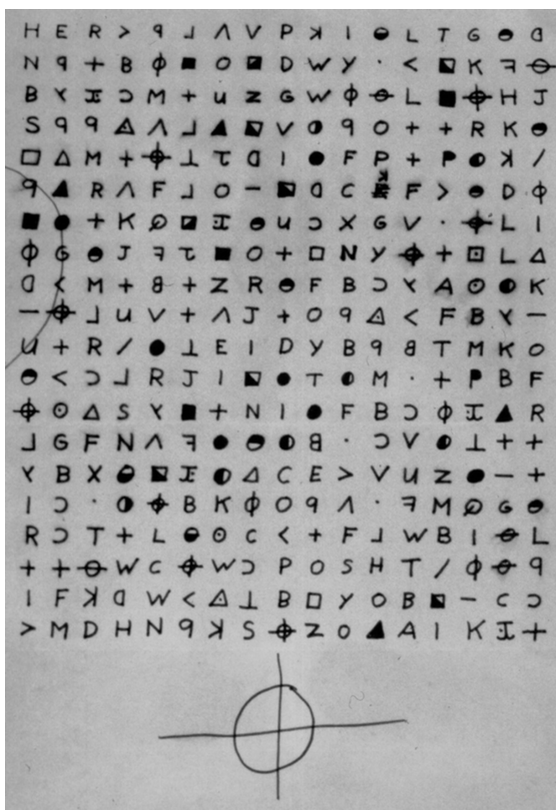 H E R > ꟼ ⅃ Λ V P ꓘ I ◒ L T G ◒ ᗡ
N ꟼ + B ϕ ■ O ◪ D W Y · < ◩ K ꟻ ⊖
B ⅄ Ɪ Ɔ M + U Z G W ϕ ⊖ L ■ ⌖ H J
S ꟼ ꟼ △ Λ ⅃ ▲ ◩ V ◑ ꟼ O + + R K ◒
□ △ M + ⌖ ⊥ τ ᗡ I ● F P + P ◐ ꓘ /
ꟼ ▲ R Λ F ⅃ O - ◩ ᗡ C ꓘ F > ◒ D ϕ
■ ● + K ∅ ◪ Ɪ ◒ U Ɔ X G V · ⌖ L I
ϕ G ◒ J ꟻ τ ■ O + □ N Y ⌖ + ⊡ L △
ᗡ < M + 8 + Z R ◒ F B Ɔ ⅄ A ⊙ ◐ K
- ⌖ ⅃ U V + Λ J + O ꟼ △ < F B ⅄ -
U + R / ● ⊥ E I D Y B ꟼ 8 T M K O
◒ < Ɔ ⅃ R J I ◩ ● T ◐ M · + P B F
⌖ ⊙ △ S ⅄ ■ + N I ● F B Ɔ ϕ Ɪ ▲ R
⅃ G F N Λ ꟻ ● ◒ ◐ 8 · Ɔ V ◐ ⊥ + +
⅄ B X ◒ ◩ Ɪ ◐ △ C E > V U Z ● - +
I Ɔ · ◑ ⌖ B K ϕ O ꟼ Λ · ꟻ M ∅ G ◒
R Ɔ T + L ◒ ⊙ C < + F ⅃ W B I ⊖ L
+ + ⊖ W C ⌖ W Ɔ P O S H T / ϕ ⊖ ꟼ
I F ꓘ ᗡ W < △ ⊥ B □ Y O B ◩ - C Ɔ
> M D H N ꟼ ꓘ S ⌖ Z O ▲ A I K Ɪ +
⌖